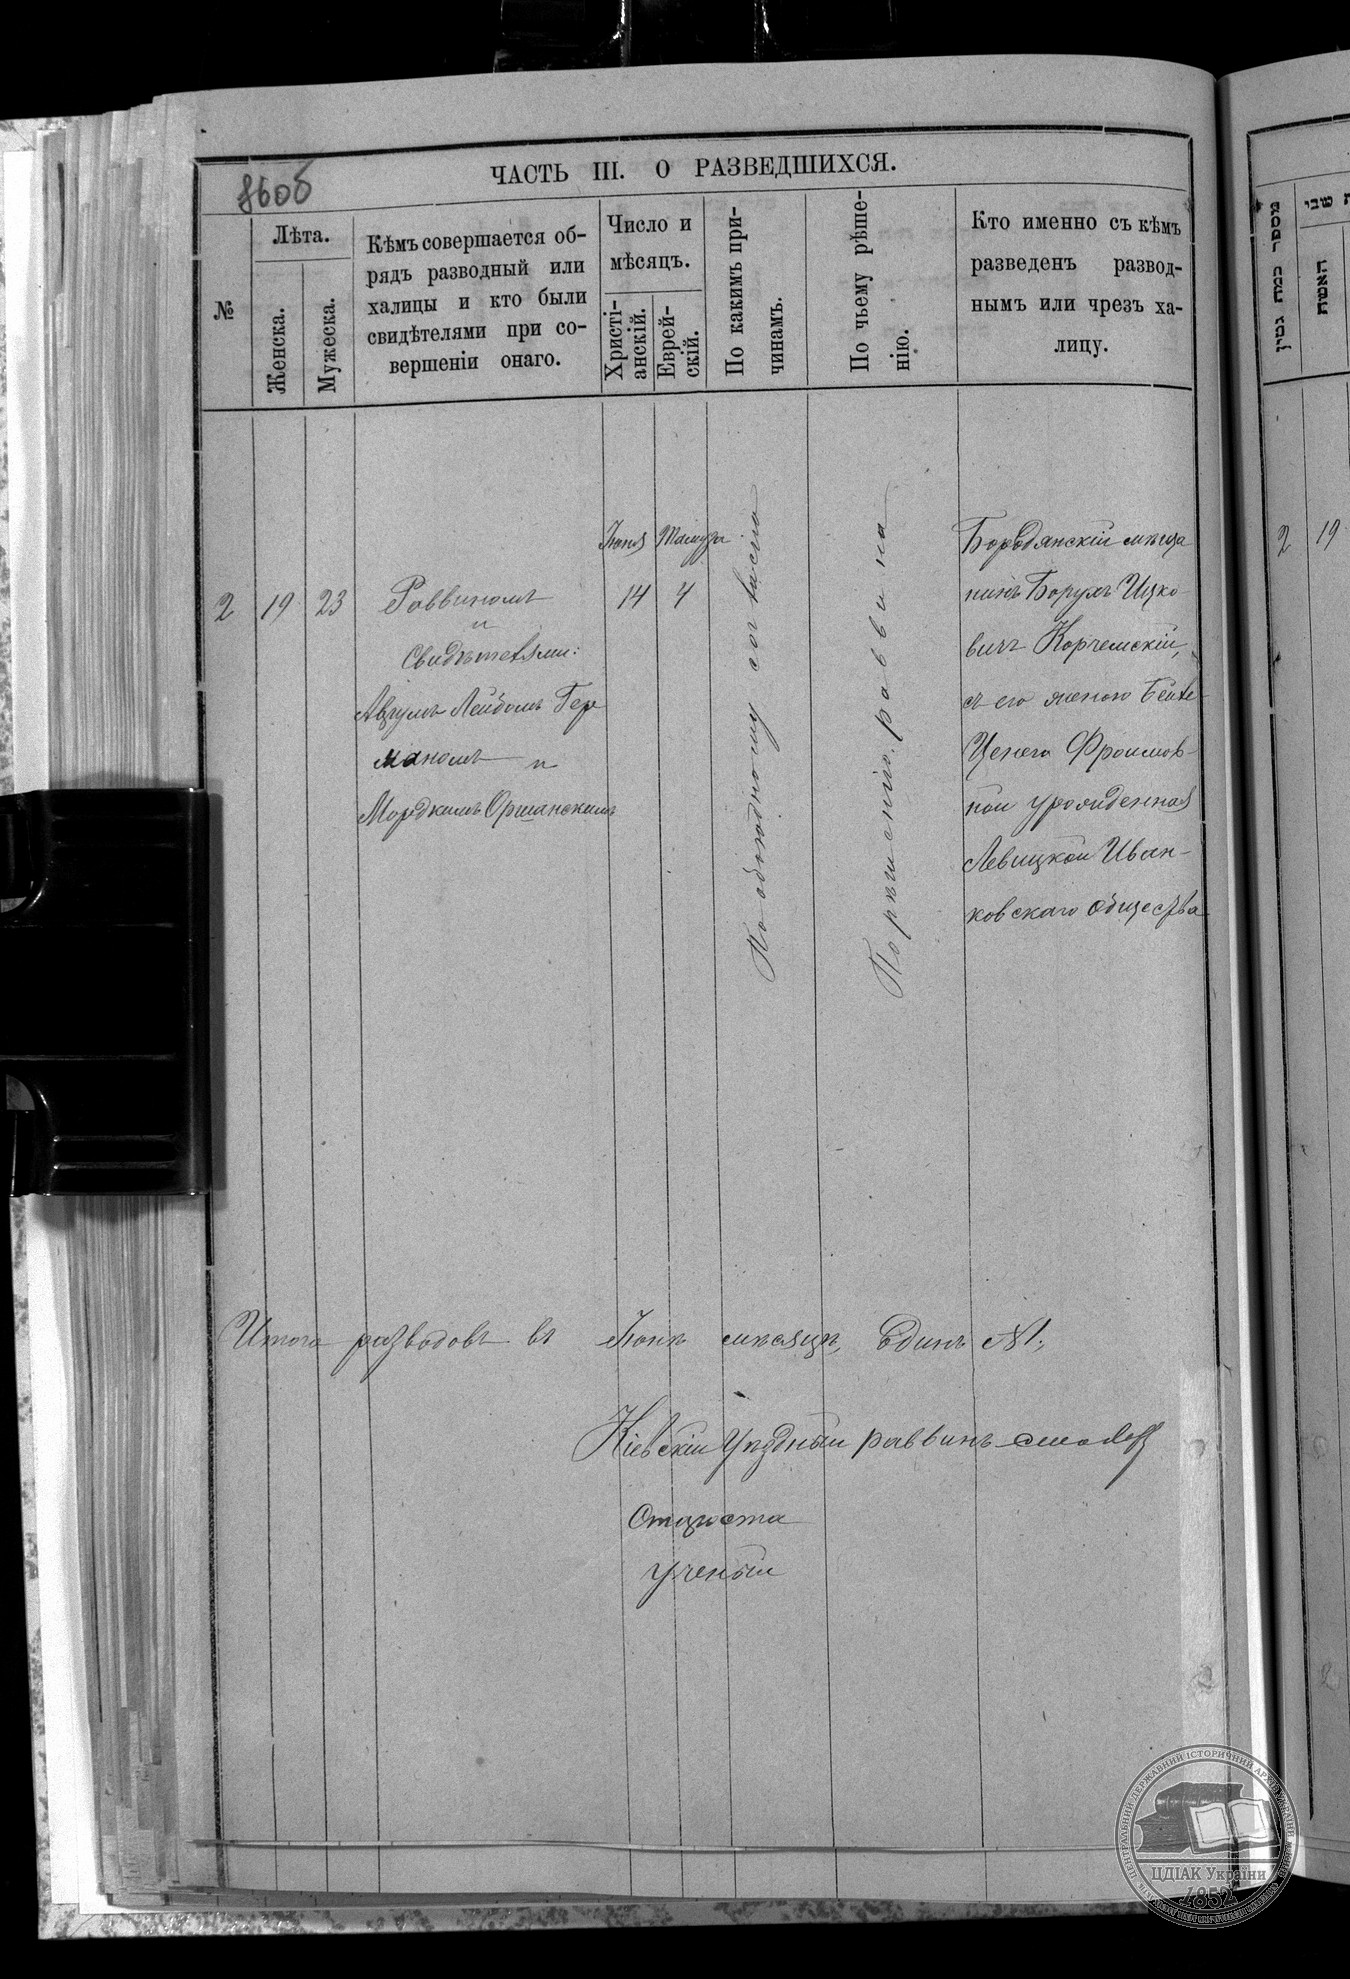 860б
ЧАСТЬ III. О РАЗВЕДШИХСЯ.
№
Лѣта.
Женска.
Мужеска.
Кѣмъ совершается об-
рядъ разводный или
халицы и кто были
свидѣтелями при со-
вершеніи онаго.
Число и
мѣсяцъ.
Христі-
анскій.
Еврей-
скій.
По какимъ при-
чинамъ.
По чьему рѣше-
нію.
Кто именно съ кѣмъ
разведенъ развод-
нымъ или чрезъ ха-
лицу.
2
19
23
Раввиномъ
и
Свидѣтелями:
Лейбомъ Гер
маномъ и
Мордкомъ Оршанскимъ
Іюня
14
Тамуза
4
По обоюдному согласію
По рѣшенію раввина
Бородянскій мѣща
нинъ Борухъ Ицко-
вичъ Корчемскій,
съ его женою Бейле
Фроимов-
ной урожденная
Левицкой Иван-
ковскаго общества
Итого разводовъ въ Іюнѣ мѣсяцѣ, Одинъ №1.
Кіевскій Уѣздный раввинъ
Староста
Ученый
מספר כמה גטין
האשה
2
19
ЦЕНТРАЛЬНИЙ ДЕРЖАВНИЙ ІСТОРИЧНИЙ АРХІВ УКРАЇНИ
ЦДІАК України
1852